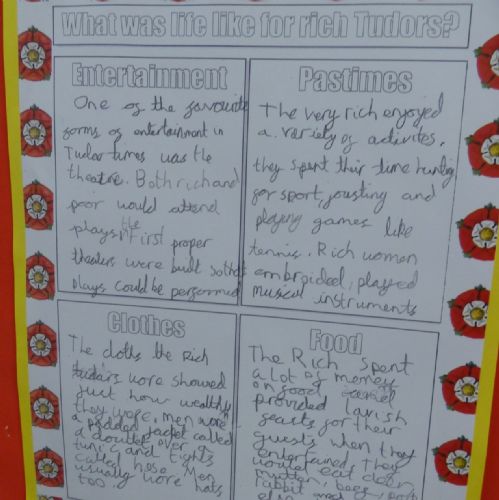 What was life like for rich Tudors?
Entertainment
One of the favourite
forms of entertainment in
Tudor times was the
theatre. Both rich and
poor would attend
plays the First proper
theaters were built so that
plays could be performed
Pastimes
The very rich enjoyed
a variety of activites,
they spent their time hunting
for sport, jousting and
playing games like
tennis. Rich women
embroided, played
musical instruments
Clothes
The cloths the Rich
tudors wore showed
just how wealthy
they were, men wore
a padded jacket called
a doublet over a
tunic and tights
called hose. Men
usually wore hats
too.
Food
The Rich spent
a lot of money
on food and
provided lavish
feasts for their
guests when they
entertained they
would eat deer,
mutton, beef, pork
rabbit